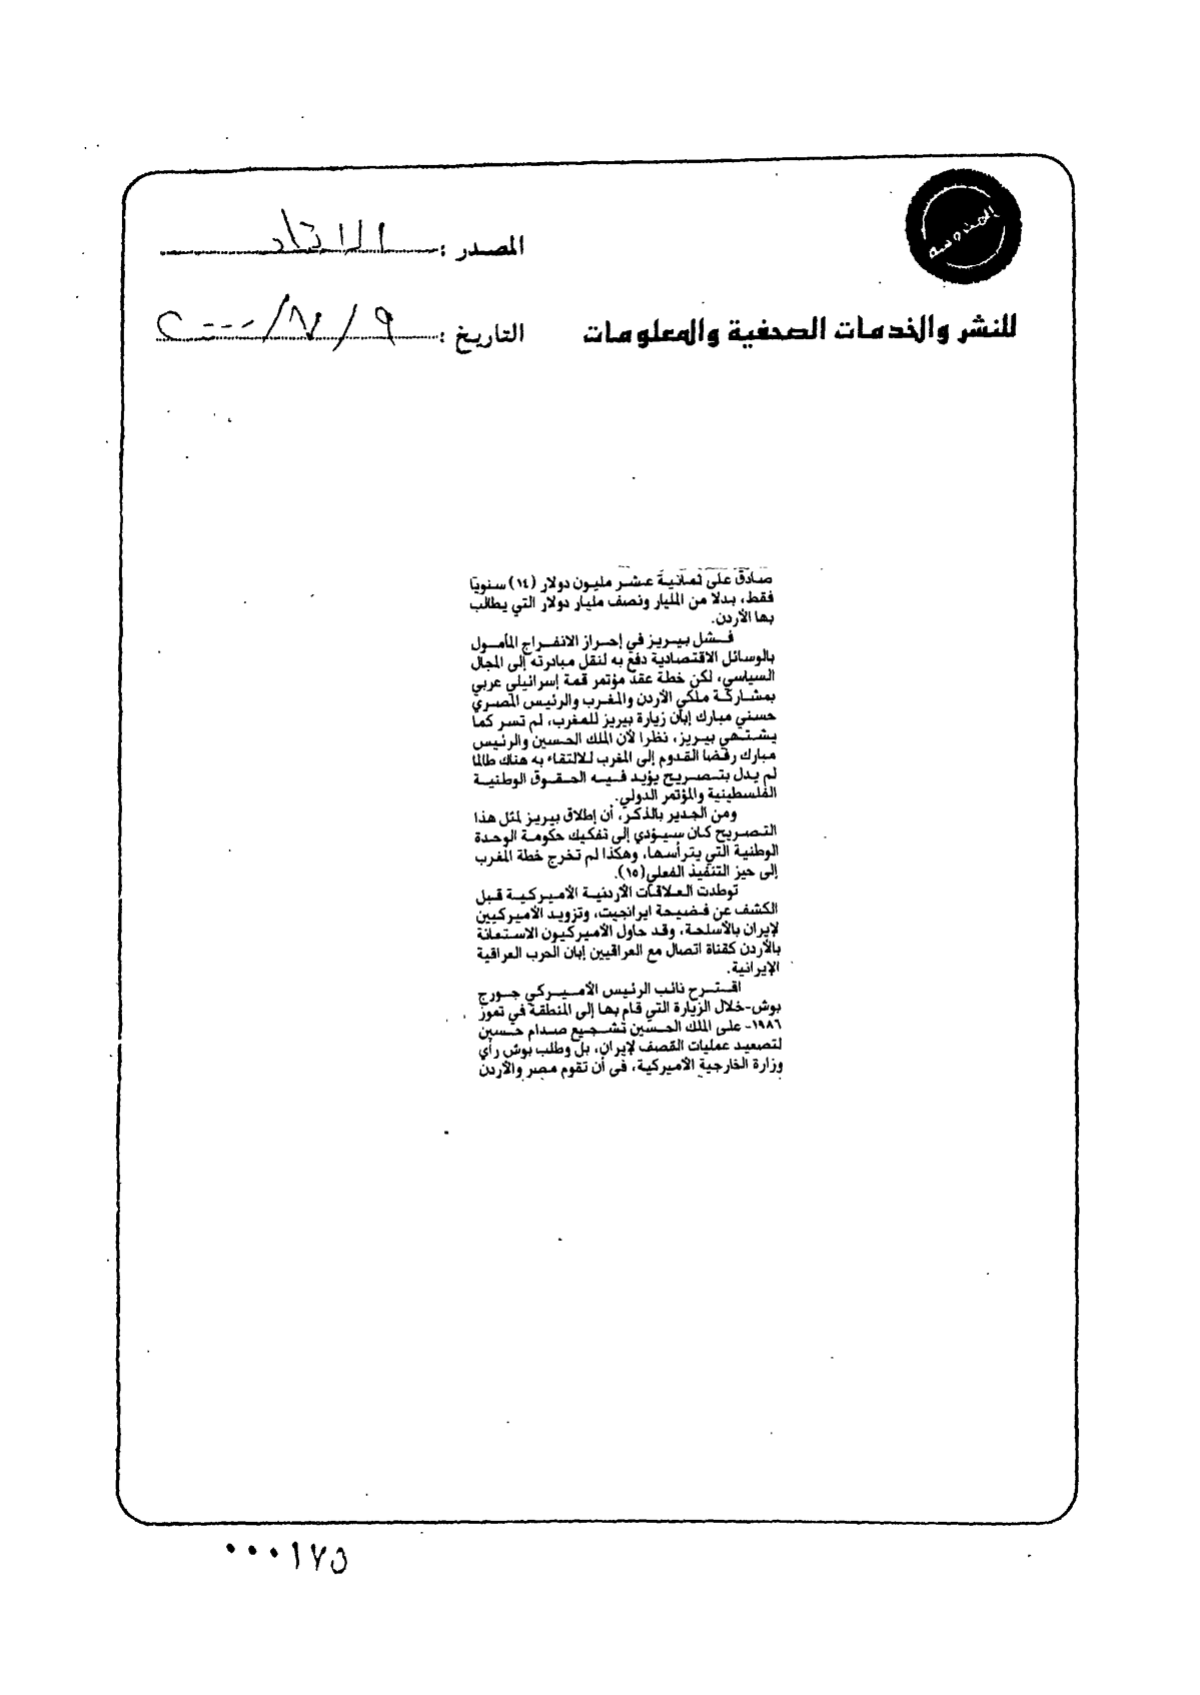 المحروسة
المصدر : الاتحاد
للنشر والخدمات الصحفية والمعلومات
التاريخ : ٩ / ٧ / ٢٠٠٠
صادق على ثمانية عشر مليون دولار (١٤) سنويا
فقط، بدلا من المليار ونصف مليار دولار التي يطالب
بها الأردن.
فشل بيريز في إحراز الانفراج المأمول
بالوسائل الاقتصادية دفع به لنقل مبادرته إلى المجال
السياسي، لكن خطة عقد مؤتمر قمة إسرائيلي عربي
بمشاركة ملكي الأردن والمغرب والرئيس المصري
حسني مبارك إبان زيارة بيريز للمغرب، لم تسر كما
يشتهي بيريز، نظرا لأن الملك الحسين والرئيس
مبارك رفضا القدوم إلى المغرب للالتقاء به هناك طالما
لم يدل بتصريح يؤيد فيه الحقوق الوطنية
الفلسطينية والمؤتمر الدولي.
ومن الجدير بالذكر، أن إطلاق بيريز لمثل هذا
التصريح كان سيؤدي إلى تفكيك حكومة الوحدة
الوطنية التي يترأسها، وهكذا لم تخرج خطة المغرب
إلى حيز التنفيذ الفعلي(١٥).
توطدت العلاقات الأردنية الأميركية قبل
الكشف عن فضيحة ايرانجيت، وتزويد الأميركيين
لإيران بالأسلحة، وقد حاول الأميركيون الاستعانة
بالأردن كقناة اتصال مع العراقيين إبان الحرب العراقية
الإيرانية.
اقترح نائب الرئيس الأميركي جورج
بوش-خلال الزيارة التي قام بها إلى المنطقة في تموز
١٩٨٦- على الملك الحسين تشجيع صدام حسين
لتصعيد عمليات القصف لإيران، بل وطلب بوش رأي
وزارة الخارجية الأميركية، في أن تقوم مصر والأردن
٠٠٠١٧٥